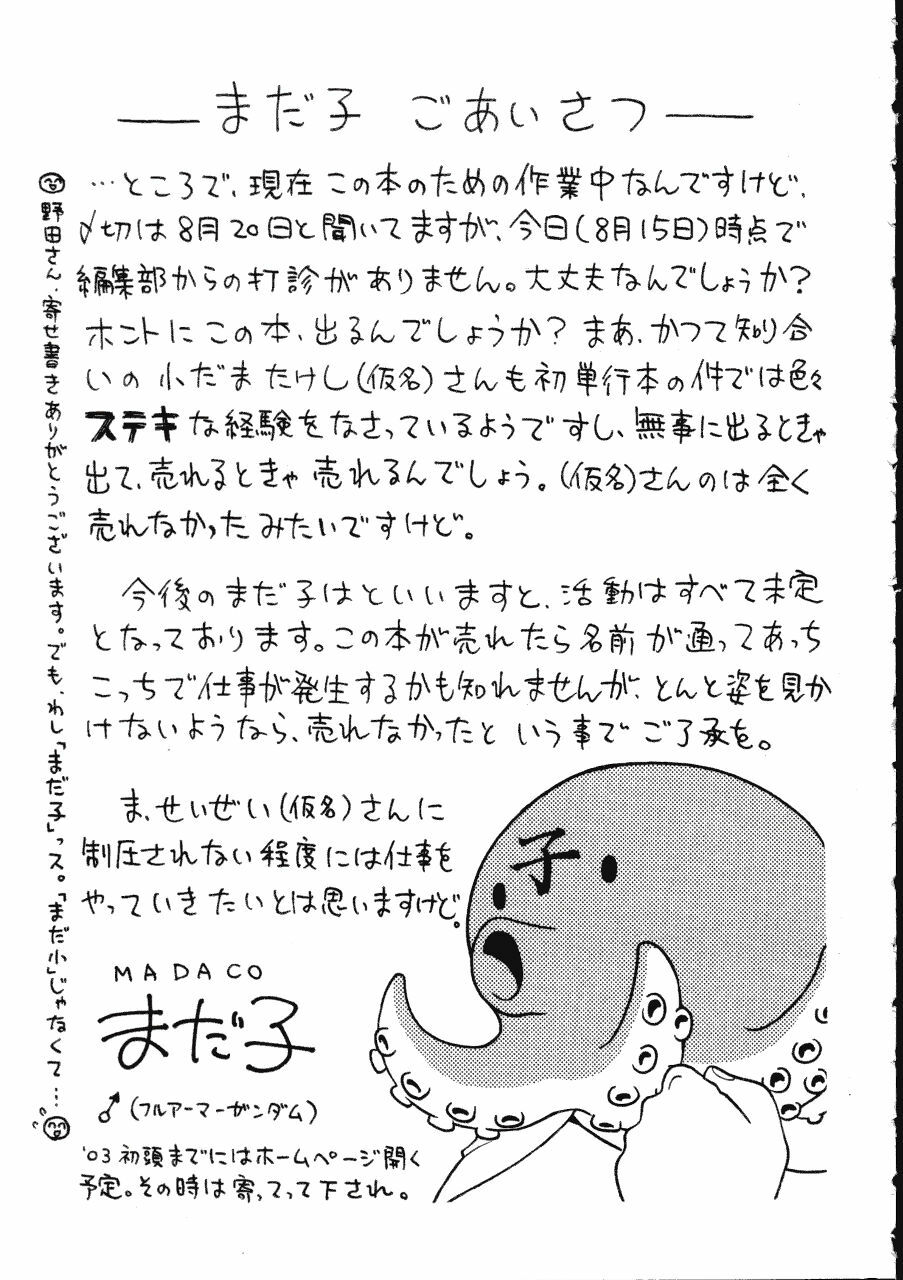 まだ子 ごあいさつ
…ところで、現在 この本のための作業中なんですけど、
〆切は8月20日と聞いてますが、今日(8月15日)時点で
編集部からの打診がありません。大丈夫なんでしょうか?
ホントにこの本、出るんでしょうか? まあ、かつて知り合
いの 小だまたけし(仮名)さんも初単行本の件では色々
ステキな経験をなさっているようですし、無事に出るときゃ
出て、売れるときゃ 売れるんでしょう。(仮名)さんのは全く
売れなかったみたいですけど。
今後のまだ子はといいますと、活動はすべて未定
となっております。この本が売れたら名前が通ってあっち
こっちで仕事が発生するかも知れませんが、とんと姿を見か
けないようなら、売れなかったと いう事でご了承を。
ま、せいぜい(仮名)さんに
制圧されない程度には仕事を
やっていきたいとは思いますけど。
MADACO
まだ子
♂(フルアーマーガンダム)
'03初頭までにはホームページ開く
予定。その時は寄ってって下され。
野田さん、寄せ書きありがとうございます。でも、わし「まだ子」っス。「まだ小」じゃなくて…
子